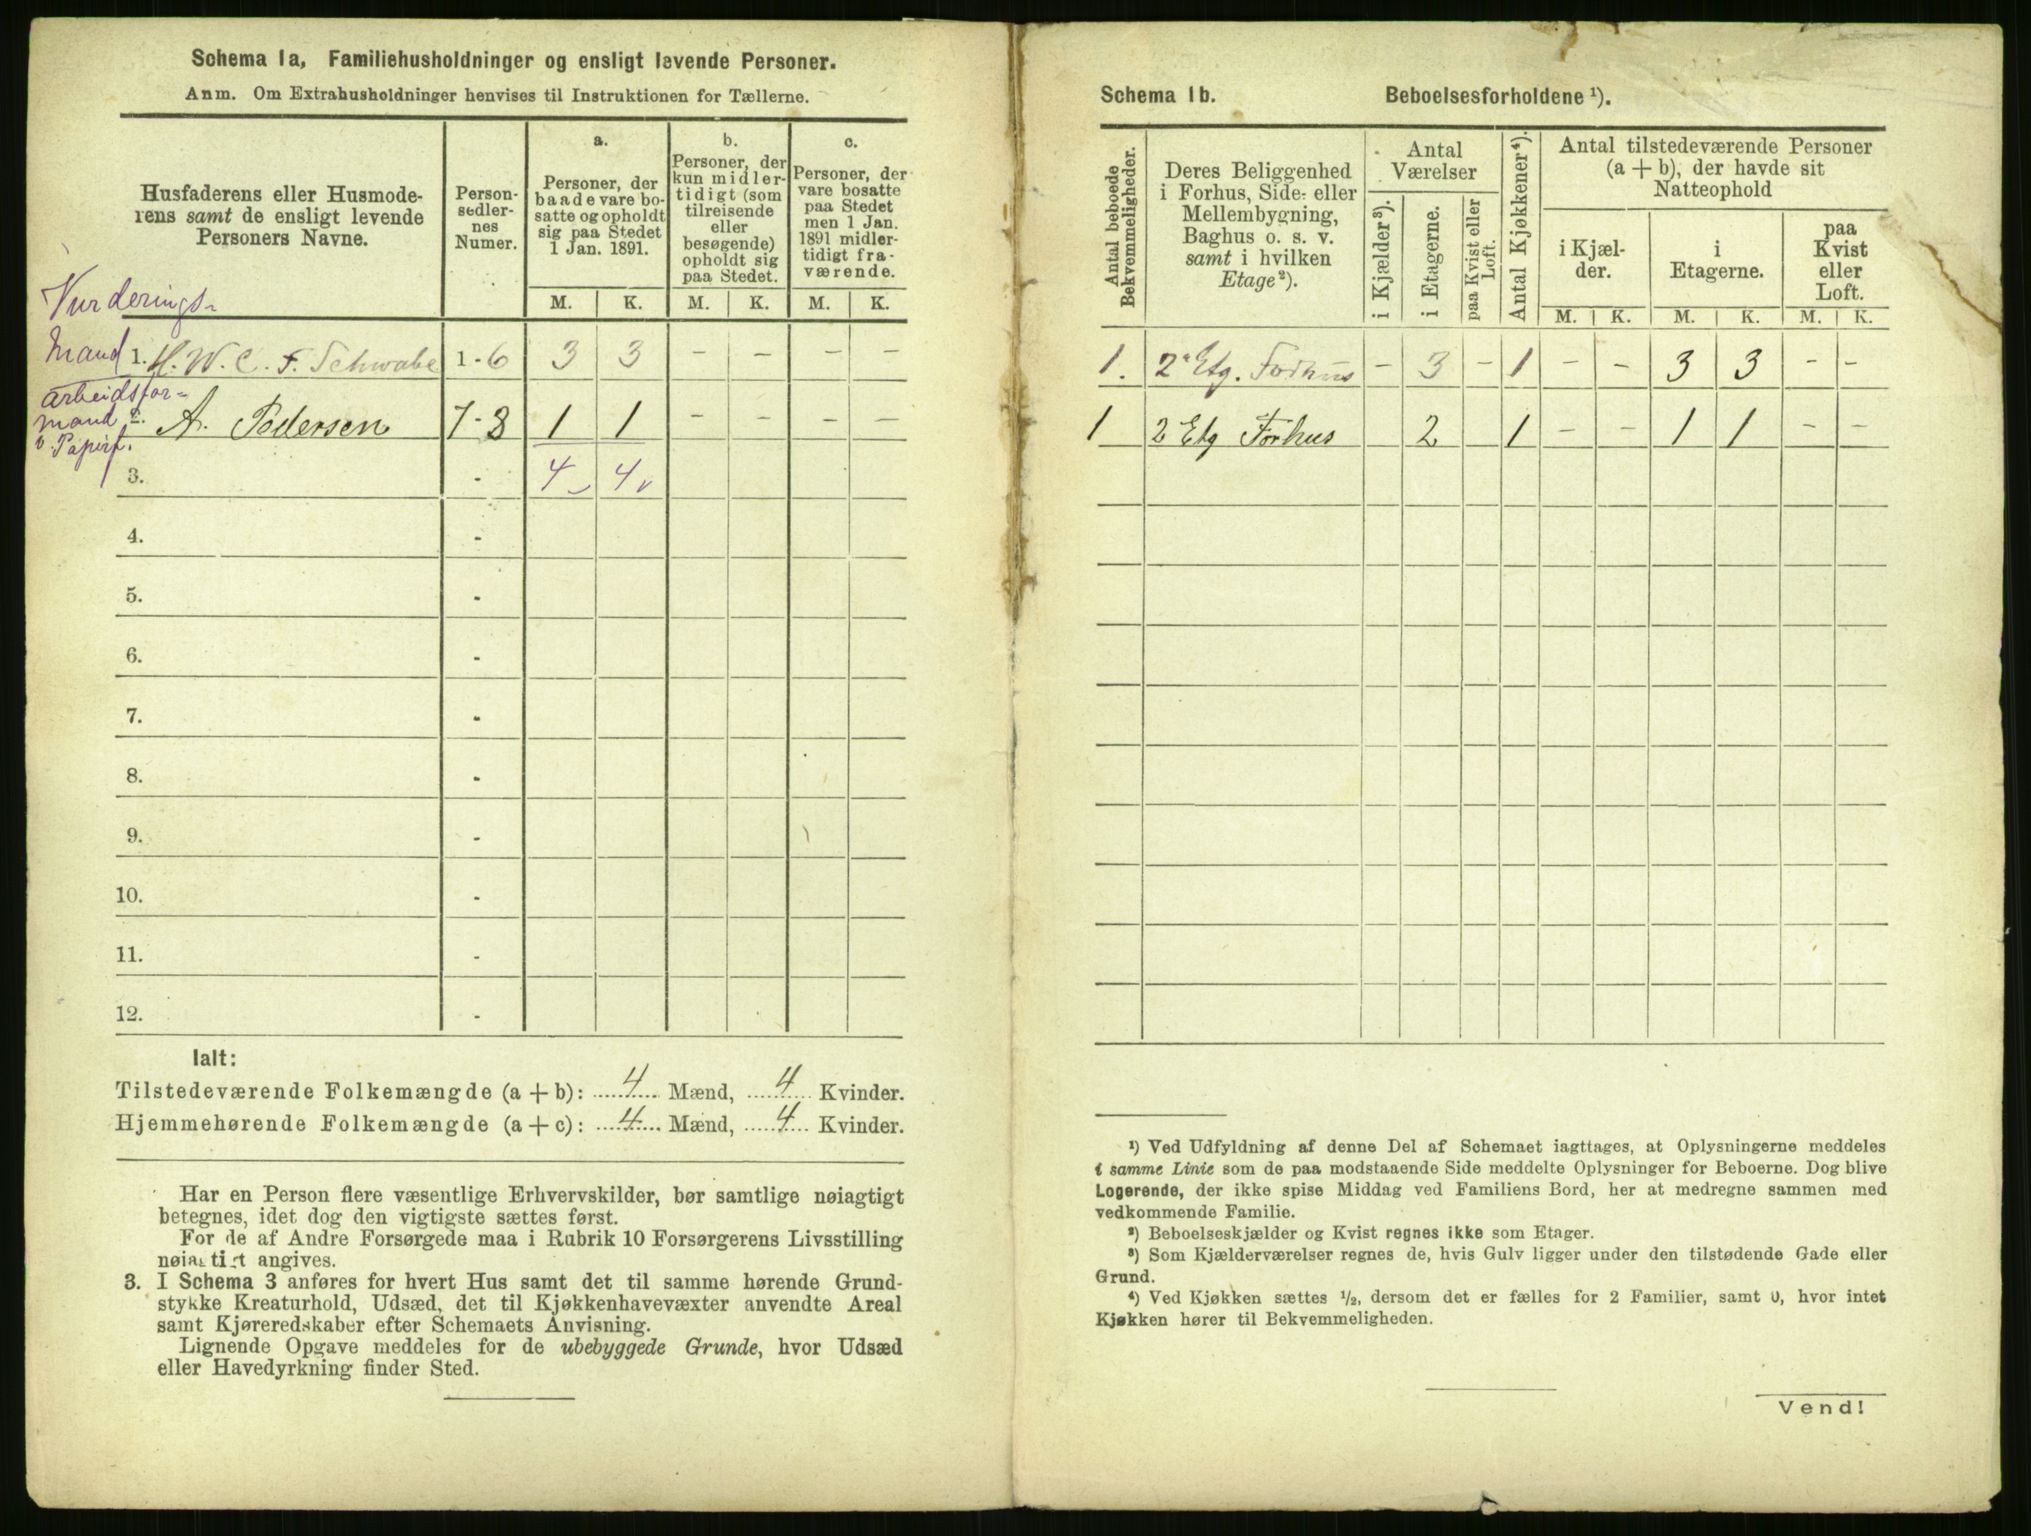 Schema 1a, Familiehusholdninger og ensligt levende Personer.
Anm. Om Extrahusholdninger henvises til Instruktionen for Tællerne.
Husfaderens eller Husmode-
rens samt de ensligt levende
Personers Navne.
Person-
sedler-
nes
Numer.
a.
Personer, der
baade vare bo-
satte og opholdt
sig paa Stedet
1 Jan. 1891.
b.
Personer, der
kun midler-
tidigt (som
tilreisende
eller
besøgende)
opholdt sig
paa Stedet.
c.
Personer, der
vare bosatte
paa Stedet
men 1 Jan.
1891 midler-
tidigt fra-
værende.
M. K. M. K. M. K.
Vurderings-
mand 1. H. W. C. F. Schwabe 1-6 3 3 - - - -
arbeidsfor-
mand 2. A. Pedersen 7-8 1 1 - - - -
v. Papirf.
3. - 4 4
4. -
5. -
6. -
7. -
8. -
9. -
10. -
11. -
12. -
Ialt:
Tilstedeværende Folkemængde (a + b): 4 Mænd, 4 Kvinder.
Hjemmehørende Folkemængde (a + c): 4 Mænd, 4 Kvinder.
Har en Person flere væsentlige Erhvervskilder, bør samtlige nøiagtigt
betegnes, idet dog den vigtigste sættes først.
For de af Andre Forsørgede maa i Rubrik 10 Forsørgerens Livsstilling
nøiagtigt angives.
3. I Schema 3 anføres for hvert Hus samt det til samme hørende Grund-
stykke Kreaturhold, Udsæd, det til Kjøkkenhavevæxter anvendte Areal
samt Kjøreredskaber efter Schemaets Anvisning.
Lignende Opgave meddeles for de ubebyggede Grunde, hvor Udsæd
eller Havedyrkning finder Sted.
Schema 1b. Beboelsesforholdene ¹).
Antal beboede
Bekvemmeligheder.
Deres Beliggenhed
i Forhus, Side- eller
Mellembygning,
Baghus o. s. v.
samt i hvilken
Etage ²).
Antal
Værelser
i Kjælder ³).
i Etagerne.
paa Kvist eller
Loft.
Antal Kjøkkener ⁴).
Antal tilstedeværende Personer
(a + b), der havde sit
Natteophold
i Kjæl-
der.
i
Etagerne.
paa
Kvist
eller
Loft.
M. K. M. K. M. K.
1. 2 Etg. Forhus - 3 - 1 - - 3 3 - -
1 2 Etg Forhus 2 1 - - 1 1 - -
¹) Ved Udfyldning af denne Del af Schemaet iagttages, at Oplysningerne meddeles
i samme Linie som de paa modstaaende Side meddelte Oplysninger for Beboerne. Dog blive
Logerende, der ikke spise Middag ved Familiens Bord, her at medregne sammen med
vedkommende Familie.
²) Beboelseskjælder og Kvist regnes ikke som Etager.
³) Som Kjælderværelser regnes de, hvis Gulv ligger under den tilstødende Gade eller
Grund.
⁴) Ved Kjøkken sættes ½, dersom det er fælles for 2 Familier, samt 0, hvor intet
Kjøkken hører til Bekvemmeligheden.
Vend!